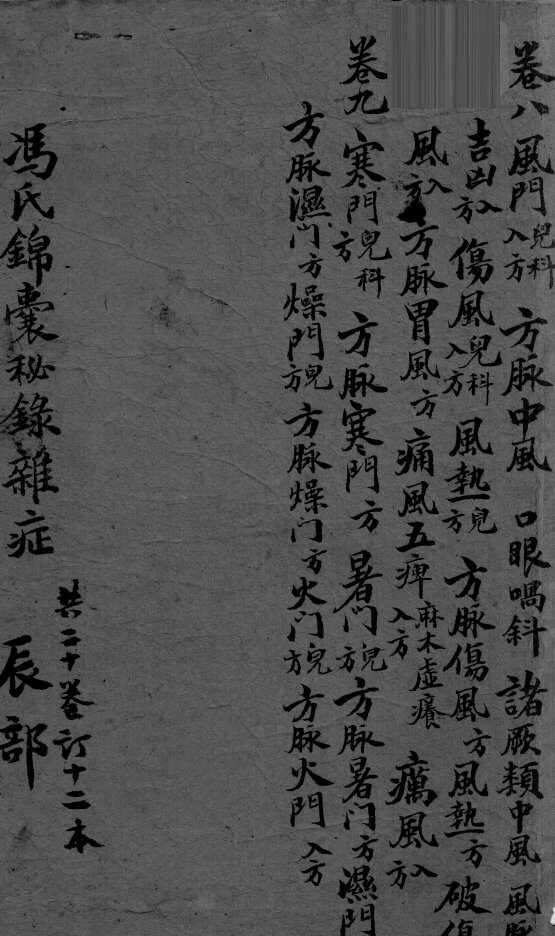 卷八 風門 兒科入方 方脉中風 口眼喎斜 諸厥類中風 風
吉凶入方 傷風 兒科入方 風熱 兒方 方脉傷風 方 風熱 方 破傷
風 入方 方脉胃風 方 痛風五痺 麻木虛癢入方 癘風 入方
卷九 寒門 兒科方 方脉寒門 方 暑门 兒方 方脉暑门 方 濕門
方脉濕门 方 燥門 兒方 方脉燥门 方 火门 兒方 方脉火門 入方
共二十卷訂十二本
馮氏錦囊秘錄雜症 辰部